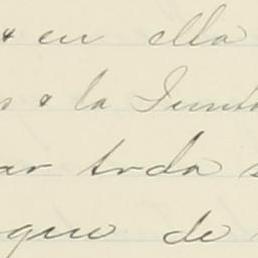 y en ella
s y la Junta
ar toda s
que de